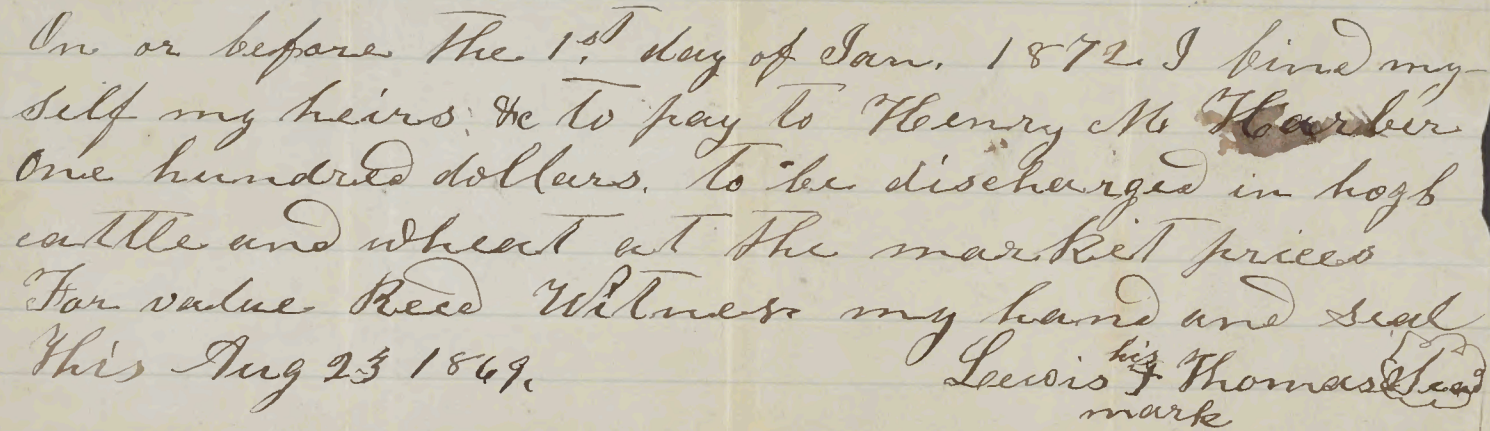 On or before the 1st day of Jan. 1872. I bind my-
self my heirs &c to pay to Henry M Harber
One hundred dollars. to be discharged in hogs
cattle and wheat at the market prices
For value Recd Witness my hand and seal
This Aug 23 1869.
Lewis his X Thomas Seal
mark